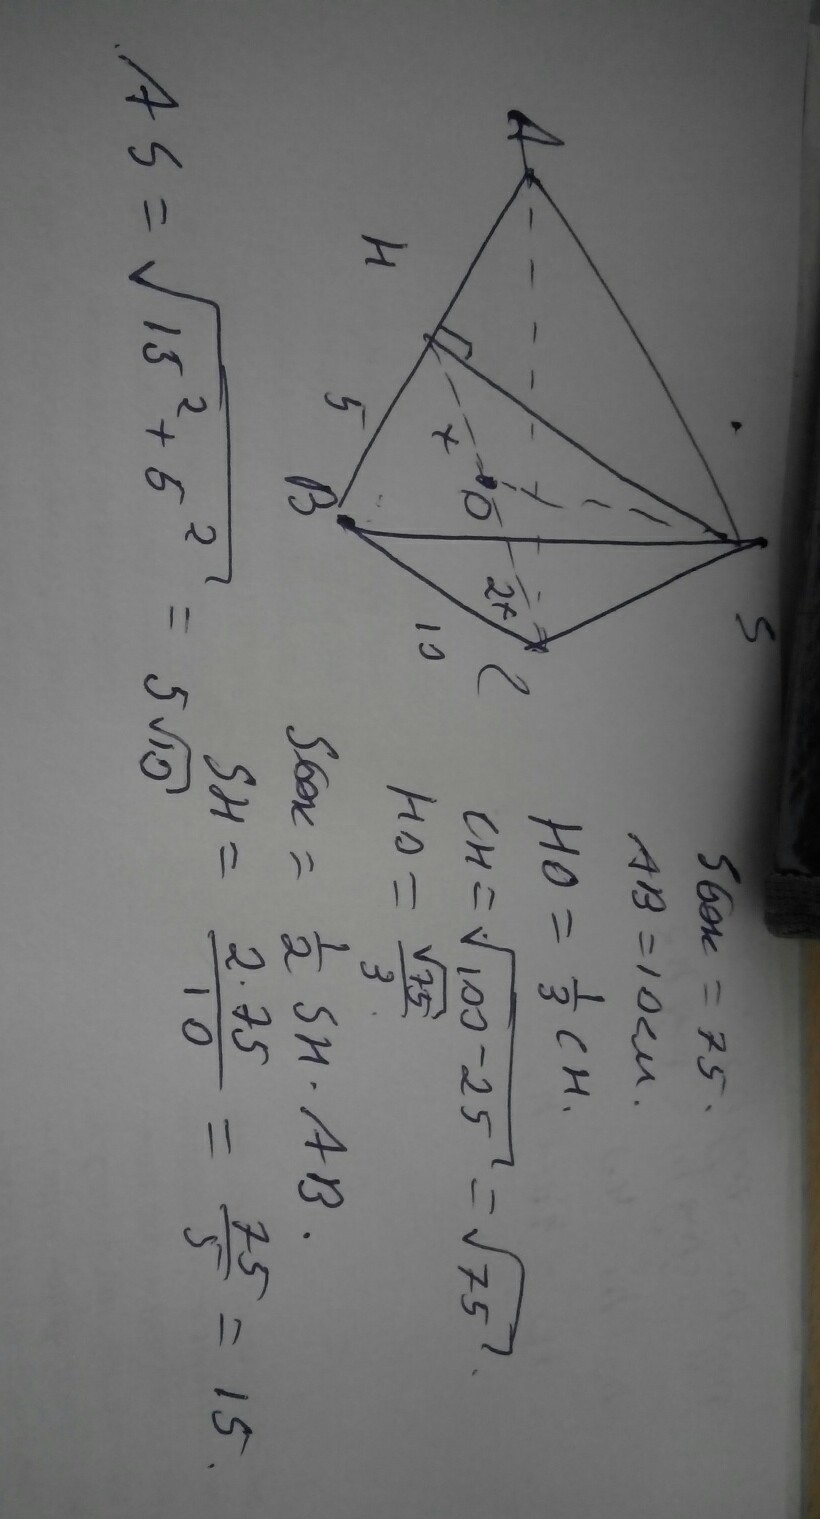 A
H
5
B
x
O
2x
10
C
S
Sбок = 75.
AB = 10см.
HO = 1/3 CH.
CH = √(100-25) = √75.
HO = √75/3.
Sбок = 1/2 SH · AB.
SH = 2·75/10 = 75/5 = 15.
AS = √(15² + 5²) = 5√10